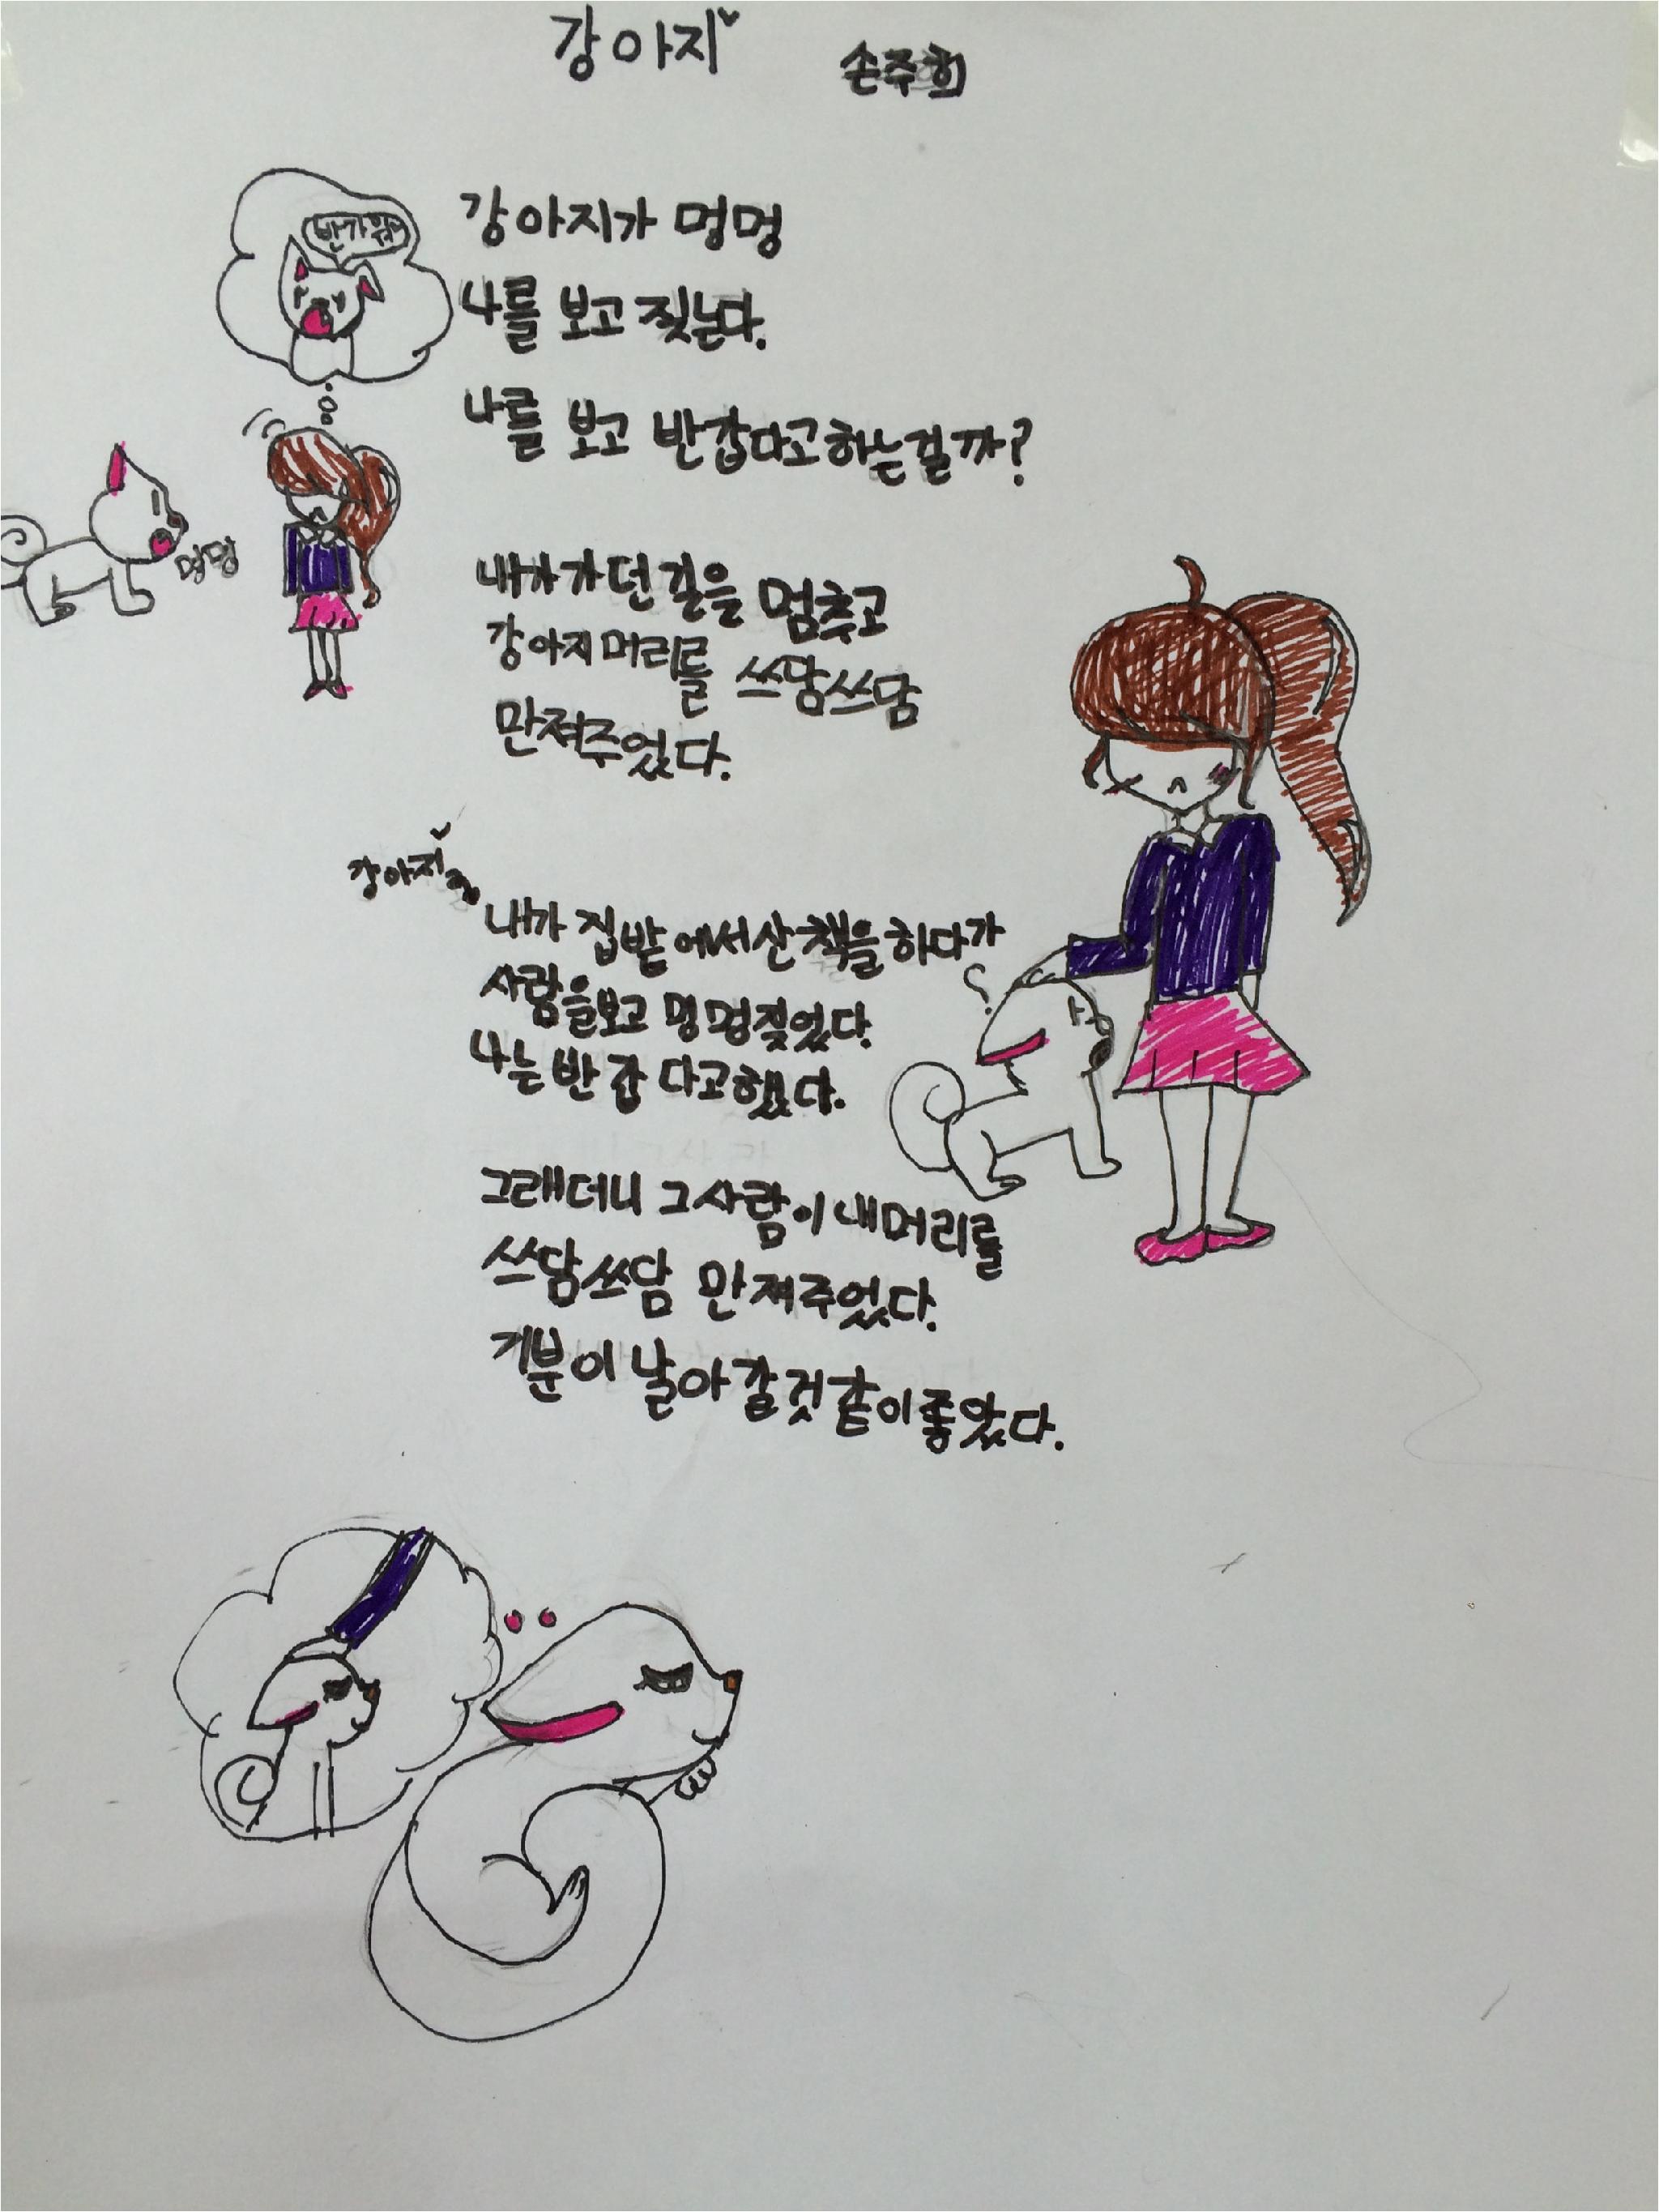 강아지 손주희
반가워
강아지가 멍멍
나를 보고 짖는다.
나를 보고 반갑다고하는걸까?
멍멍
내가가던길을 멈추고
강아지머리를 쓰담쓰담
만져주었다.
강아지
내가 집밭에서산책을하다가
사람을보고 멍멍짖었다.
나는반갑다고했다.
그래더니 그사람이내머리를
쓰담쓰담 만져주었다.
기분이날아갈것같이좋았다.